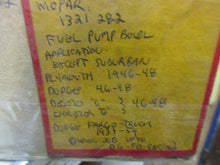 MOPAR
1321 282
FUEL PUMP BOWL
APPLICATION-
EXCEPT SUBURBAN
PLYMOUTH 1946-48
DODGE 46-48
DESOTO "6" } 46-48
CHRYSLER "6" }
DODGE FARGO TRUCK
1937-54